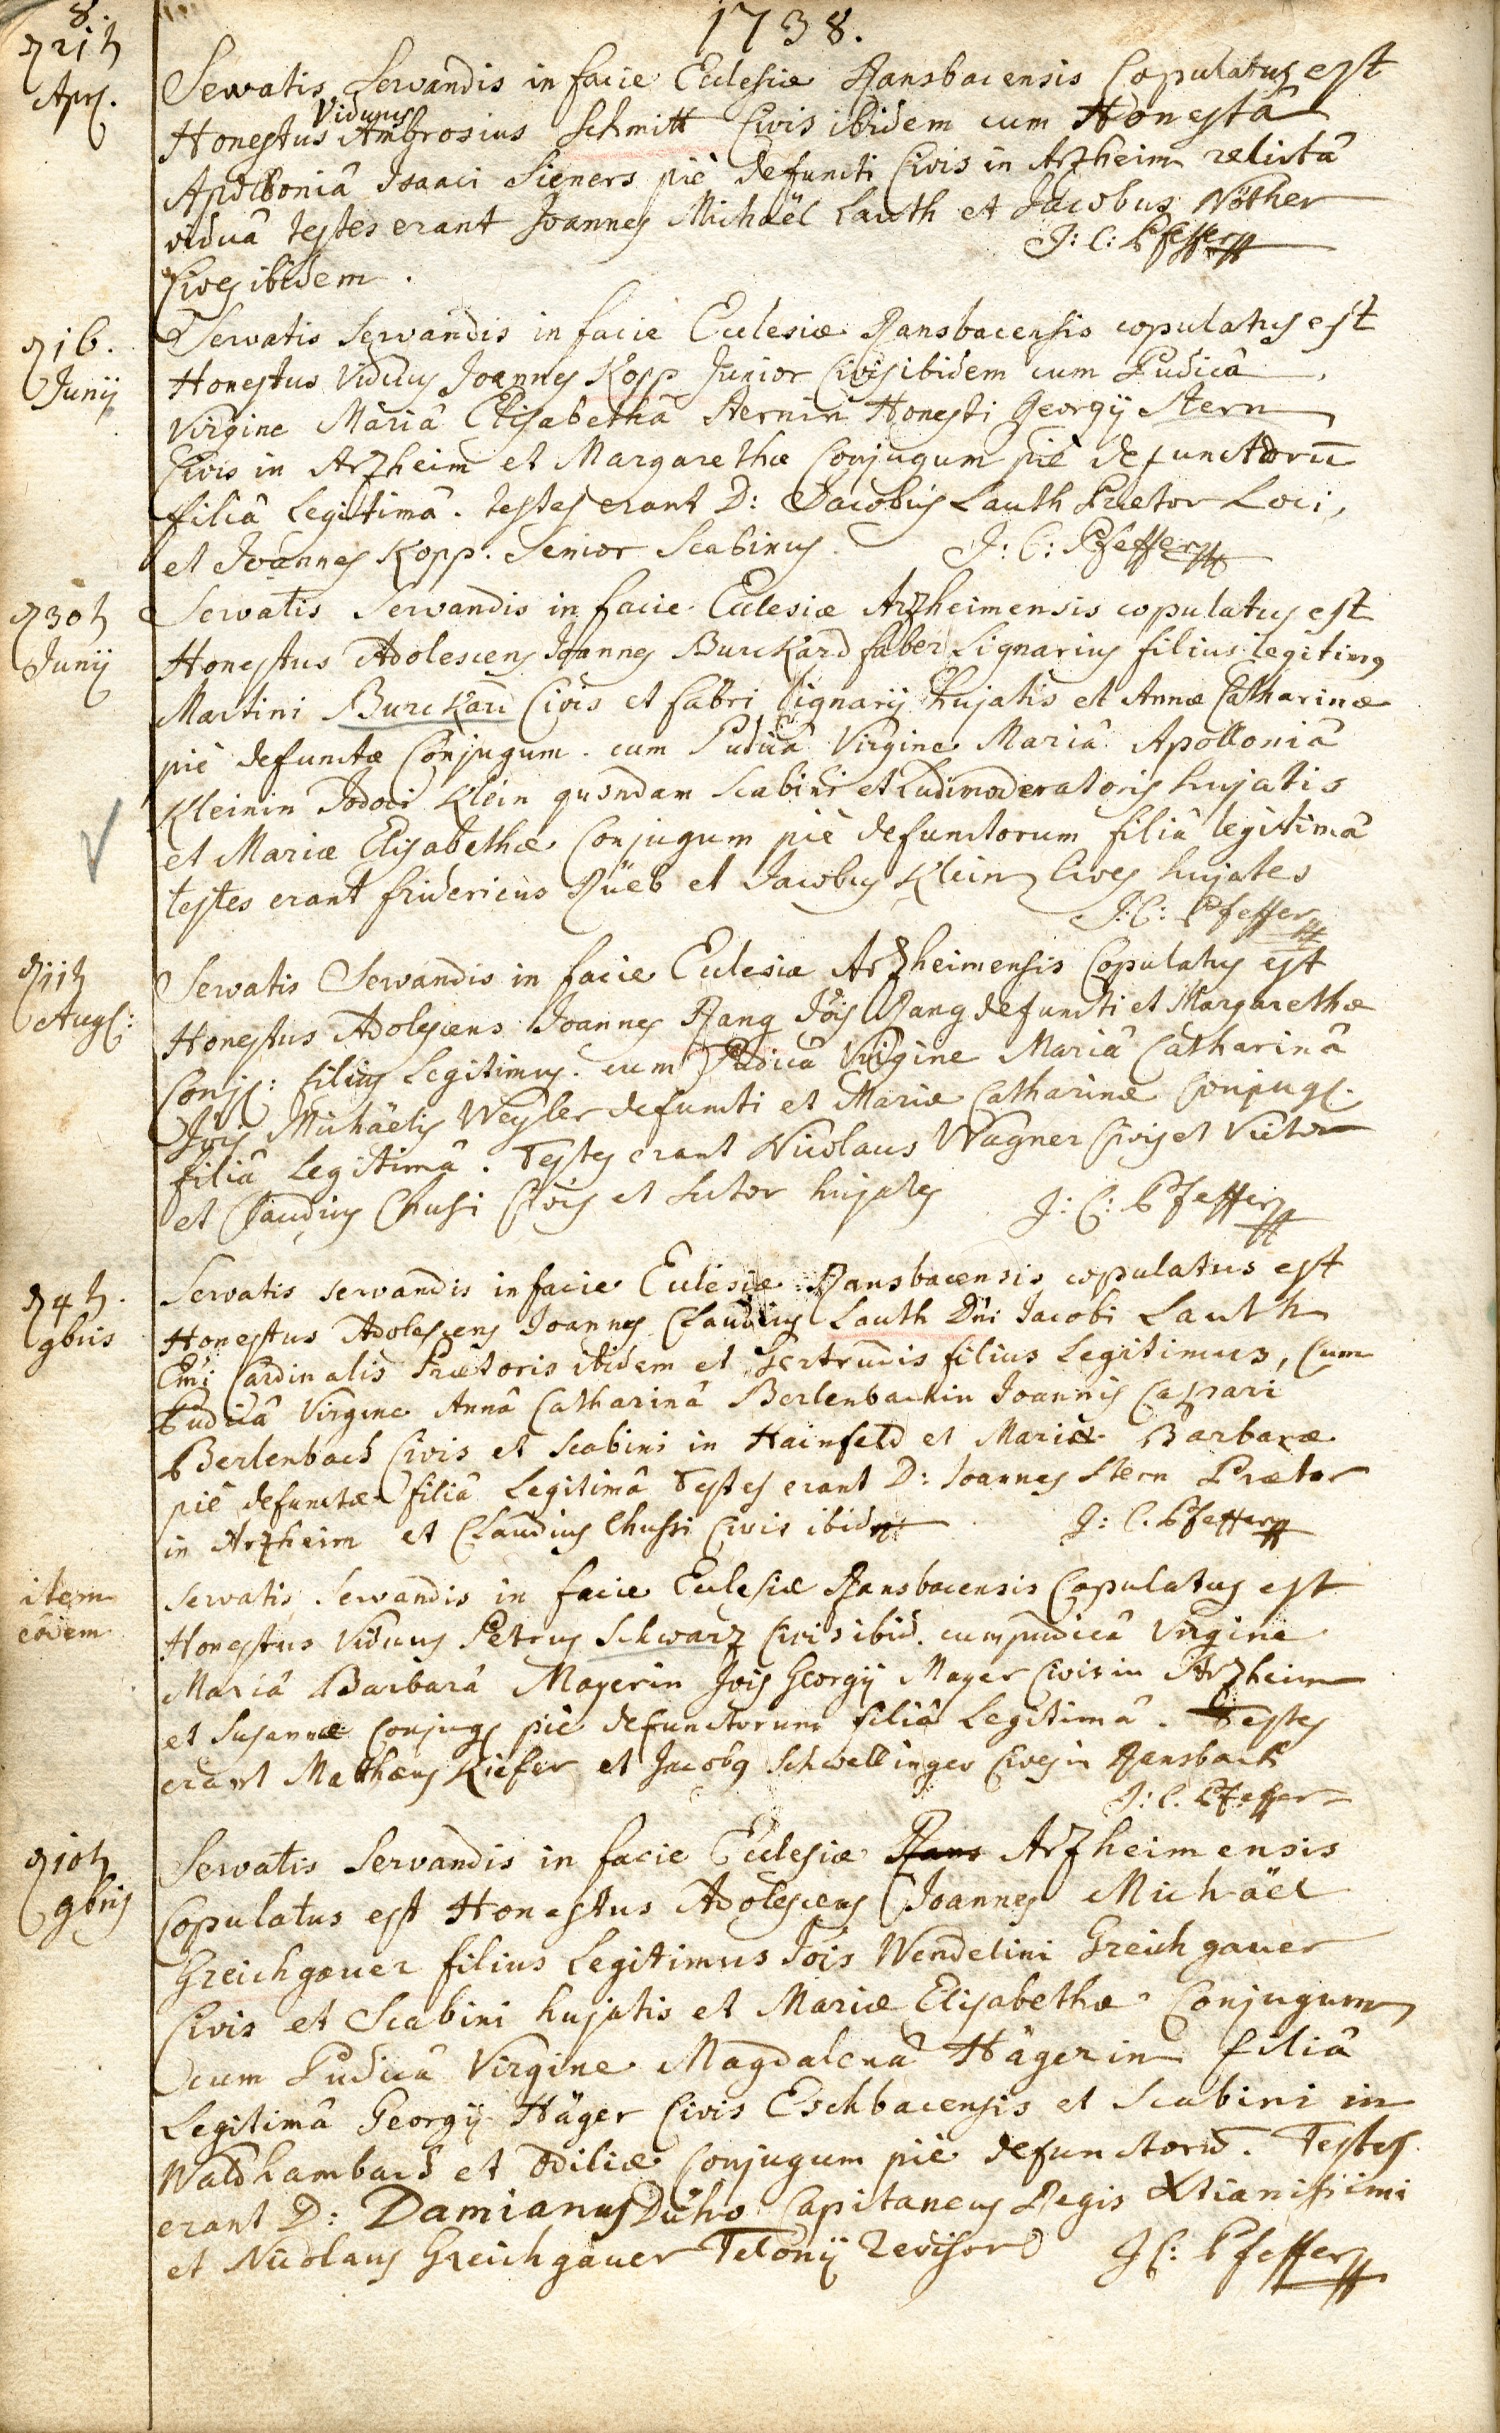 8.
1738.
d 21t
Apr.
Servatis Servandis in facie Eclesiæ Ransbacensis Copulatus est
Viduus
Honestus Ambrosius Schmitt Civis ibidem cum Honestâ
Apolloniâ Isaaci Sieners piè defuncti Civis in Arzheim relictâ
viduâ testes erant Joannes Michaël Lauth et Jacobus Nöther
J: C: Pfeffer
Cives ibidem.
d 16.
Junij
Servatis Servandis in facie Eclesiæ Ransbacensis copulatus est
Honestus Viduus Joannes Kopp Junior Civis ibidem cum Pudicâ
Virgine Mariâ Elisabethâ Sternin Honesti Georgij Stern
Civis in Arzheim et Margarethæ Conjugum piè defunctorū
filiâ Legitimâ. testes erant D: Jacobus Lauth Prætor Loci,
et Joannes Kopp. Senior Scabinus. J: C: Pfeffer
d 30t
Junij
Servatis Servandis in facie Eclesiæ Arzheimensis copulatus est
Honestus Adolescens Joannes Burckard faber Lignarius filius legitimg
Martini Burckard Civis et fabri lignarij hujatis et Annæ Catharinæ
piè defunctæ Conjugum. cum Pudicâ Virgine Mariâ Apolloniâ
Kleinin Jodoci Klein quondam Scabini et Ludimoderatoris hujatis
et Mariæ Elisabethæ Conjugum piè defunctorum filiâ legitimâ
testes erant fridericus Rüeb et Jacobus Klein Cives hujates
J: C: Pfeffer
d 11t
Aug:
Servatis Servandis in facie Eclesiæ Arzheimensis Copulatus est
Honestus Adolescens Joannes Rang Jois Rang defuncti et Margarethæ
Conj: filius Legitimus. cum Pudicâ Virgine Mariâ Catharinâ
Jois Michäelis Weysler defuncti et Mariæ Catharinæ Conjug.
filiâ Legitimâ. Testes erant Nicolaus Wagner Civis et Viëtor
et Claudius Chusi Civis et sutor hujates J: C: Pfeffer
d 4t.
9bris
Servatis servandis in facie Eclesiæ Ransbacensis copulatus est
Honestus Adolescens Joannes Claudius Lauth Dni Jacobi Lauth
Emi Cardinalis Prætoris ibidem et Gertrudis filius Legitimus, Cum
Pudicâ Virgine Annâ Catharinâ Berlenbachin Joannis Caspari
Berlenbach Civis et Scabini in Hainfeld et Mariæ Barbaræ
piè defunctæ filiâ Legitimâ Testes erant D: Joannes Stern Prætor
in Arzheim et Claudius Chussi Civis ibid J: C. Pfeffer
item
eodem
Servatis Servandis in facie Eclesiæ Ransbacensis Copulatus est
Honestus Viduus Petrus Schwarz Civis ibid. cum pudicâ Virgine
Mariâ Barbarâ Mayerin Jois Georgij Mayer Civis in Arzheim
et Susannæ Conjug piè defunctorum filiâ Legitimâ. Testes
erant Mathæus Kiefer et Jacobg Schwellinger Cives in Ransbach
J: C. Pfeffer
d 10t
9bris
Servatis Servandis in facie Eclesiæ Rans Arzheimensis
Copulatus est Honestus Adolescens Joannes Michäel
Greichgauer filius Legitimus Jois Wendelini Greichgauer
Civis et Scabini hujatis et Mariæ Elisabethæ Conjugum
cum Pudicâ Virgine Magdalenâ Hägerin filiâ
Legitimâ Georgij Häger Civis Eschbacensis et Scabini in
Waldhambach et Odiliæ Conjugum piè defunctorū. Testes
erant D: Damianus Dutro Capitaneus Regis Xtianissimi
et Nicolaus Greichgauer Telonij revisor J C: Pfeffer